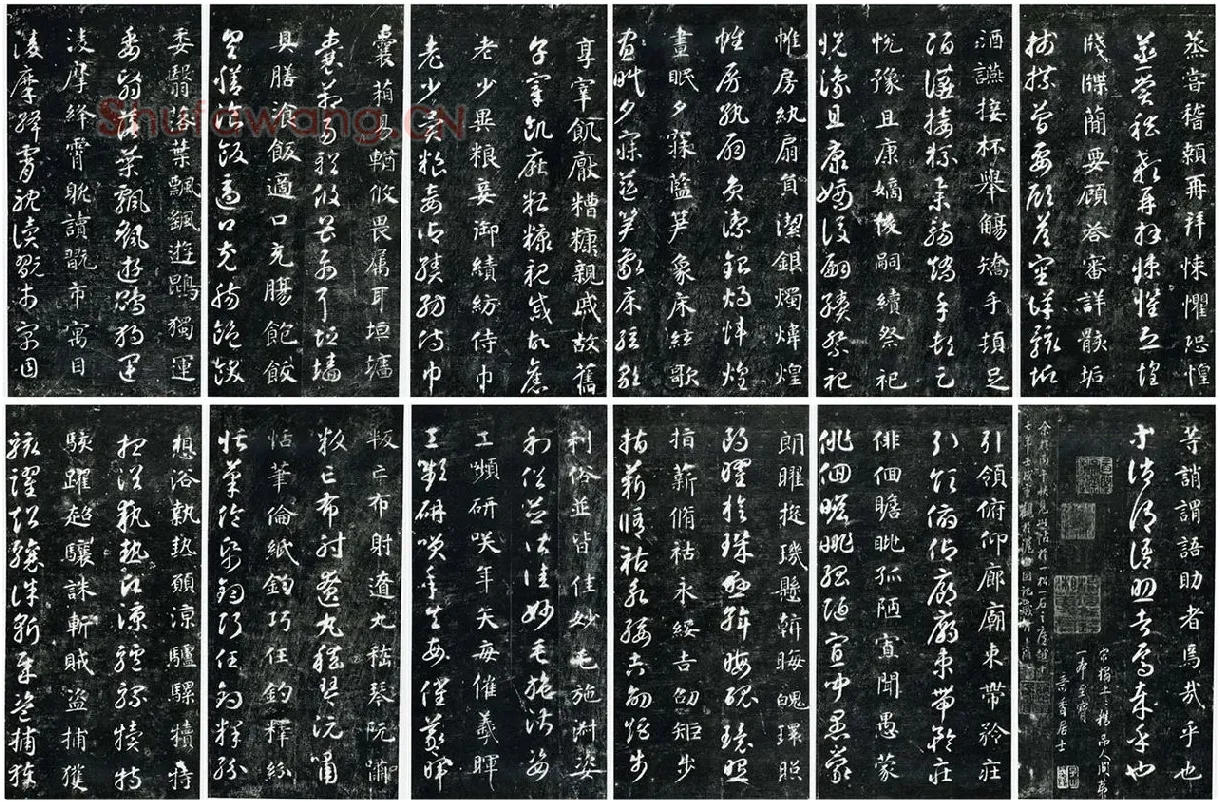 委翳落葉飄颻遊鵾獨運
委翳落葉飄颻遊鵾獨運
凌摩絳霄耽讀翫市寓目
凌摩絳霄耽讀翫市寓目
囊箱易輶攸畏屬耳垣墻
囊箱易輶攸畏屬耳垣墻
具膳飡飯適口充腸飽飫
具膳飡飯適口充腸飽飫
享宰飢厭糟糠親戚故舊
享宰飢厭糟糠親戚故舊
老少異粮妾御績紡侍巾
老少異粮妾御績紡侍巾
帷房紈扇負潔銀燭煒煌
帷房紈扇負潔銀燭煒煌
晝眠夕寐藍笋象床絃歌
晝眠夕寐藍笋象床絃歌
酒讌接杯舉觴矯手頓足
酒讌接杯舉觴矯手頓足
悅豫且康嫡後嗣續祭祀
悅豫且康嫡後嗣續祭祀
蒸甞稽顙再拜悚懼恐惶
蒸甞稽顙再拜悚懼恐惶
牋牒簡要顧答審詳骸垢
牋牒簡要顧答審詳骸垢
想浴執熱願涼驢騾犢特
想浴執熱願涼驢騾犢特
駭躍超驤誅斬賊盜捕獲
駭躍超驤誅斬賊盜捕獲
叛亡布射遼丸嵇琴阮嘯
叛亡布射遼丸嵇琴阮嘯
恬筆倫紙鈞巧任釣釋紛
恬筆倫紙鈞巧任釣釋紛
利俗並皆佳妙毛施淑姿
利俗並皆佳妙毛施淑姿
工顰研咲年矢每催羲暉
工顰研咲年矢每催羲暉
朗曜琁璣懸斡晦魄環照
朗曜琁璣懸斡晦魄環照
指薪脩祜永綏吉劭矩步
指薪脩祜永綏吉劭矩步
引領俯仰廊廟束帶矜莊
引領俯仰廊廟束帶矜莊
俳佪瞻眺孤陋寡聞愚蒙
俳佪瞻眺孤陋寡聞愚蒙
等誚謂語助者焉哉乎也
等誚謂語助者焉哉乎也
Shufawang.CN